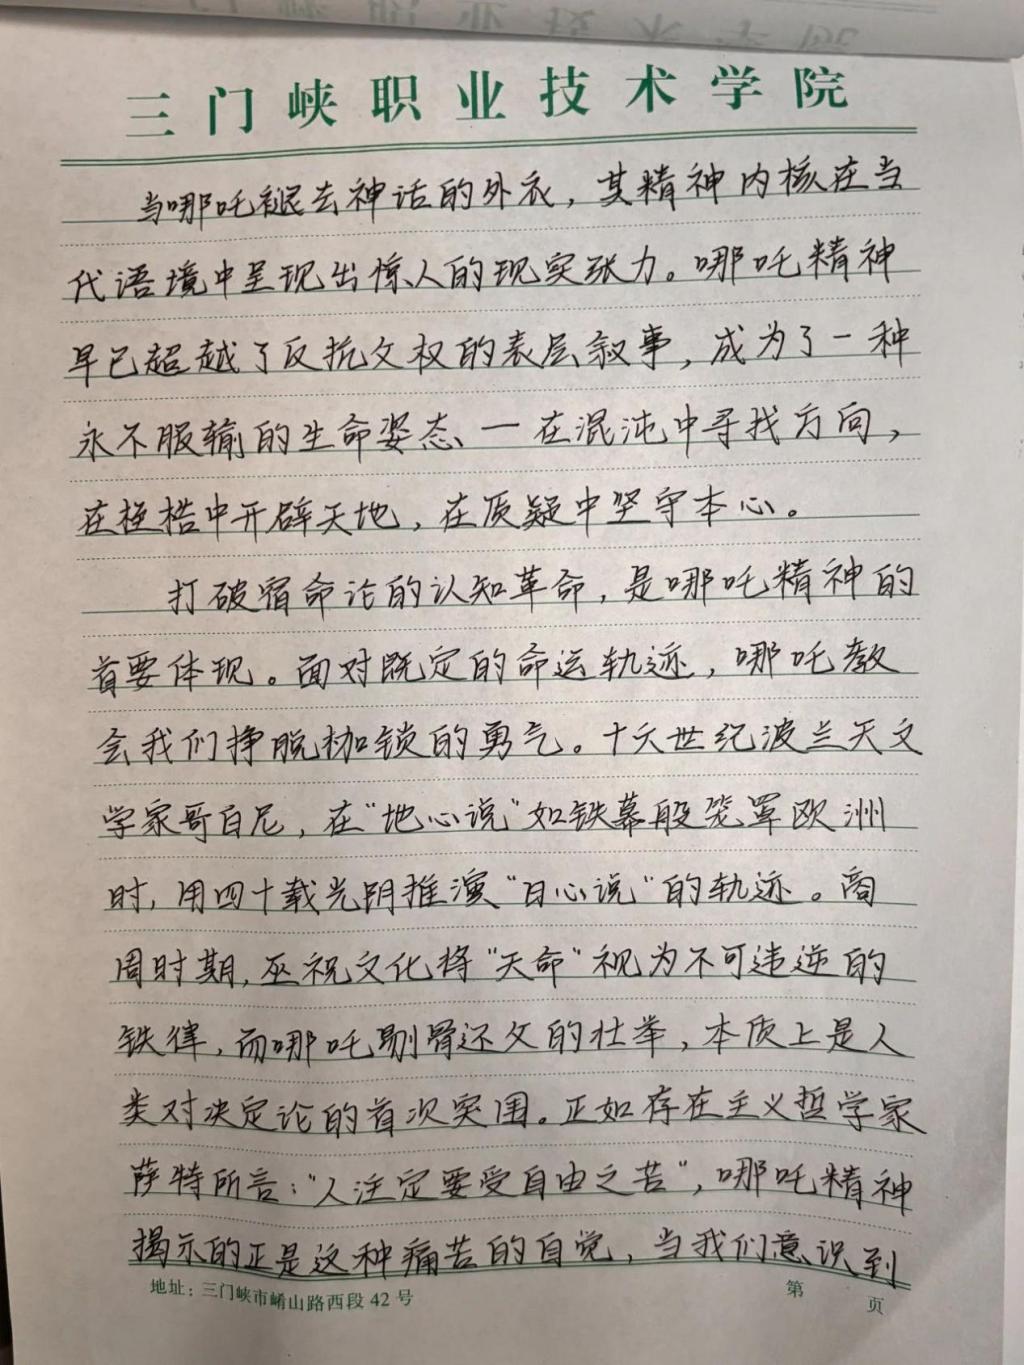 三门峡职业技术学院
当哪吒褪去神话的外衣，其精神内核在当
代语境中呈现出惊人的现实张力。哪吒精神
早已超越了反抗父权的表层叙事，成为了一种
永不服输的生命姿态、一在混沌中寻找方向，
在桎梏中开辟天地，在质疑中坚守本心。
打破宿命论的认知革命，是哪吒精神的
首要体现。面对既定的命运轨迹，哪吒教
会我们挣脱枷锁的勇气。十六世纪波兰天文
学家哥白尼，在“地心说”如铁幕般笼罩欧洲
时，用四十载光阴推演“日心说”的轨迹。商
周时期，巫祝文化将“天命”视为不可违逆的
铁律，而哪吒剔骨还父的壮举，本质上是人
类对决定论的首次突围。正如存在主义哲学家
萨特所言：“人注定要受自由之苦”，哪吒精神
揭示的正是这种痛苦的自觉，当我们意识到
地址：三门峡市崤山路西段 42 号 第 页